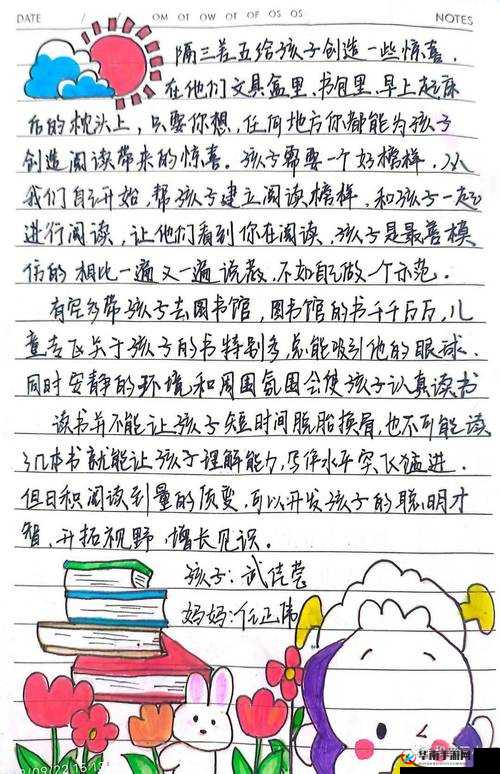 DATE / / OM OT OW OT OF OS OS NOTES
隔三差五给孩子创造一些惊喜.
在他们文具盒里.书包里.早上起床
后的枕头上，只要你想，任何地方你都能为孩子
创造阅读带来的惊喜。孩子需要一个好榜样，从
我们自己开始，帮孩子建立阅读榜样，和孩子一起
进行阅读，让他们看到你在阅读，孩子是最善模
仿的 相比一遍又一遍说教，不如自己做一个示范.
有空多带孩子去图书馆，图书馆的书千千万万，儿
童专区关于孩子的书特别多,总能吸引他的眼球.
同时安静的环境和周围氛围会使孩子认真读书
读书并不能让孩子短时间脱胎换骨,也不可能读
几本书就能让孩子理解能力,写作水平突飞猛进.
但日积阅读到量的质变，可以开发孩子的聪明才
智，开拓视野，增长见识。
孩子:武佳莹
妈妈:任正伟
09/22 15:
华南手游网